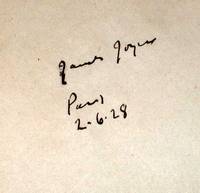 James Joyce
Paris
2-6.28